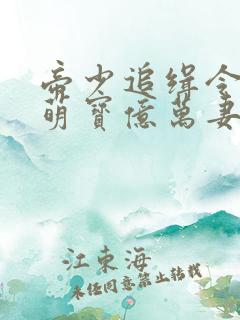 帝少追缉令
萌寳億萬妻
江東海
未经同意禁止转载